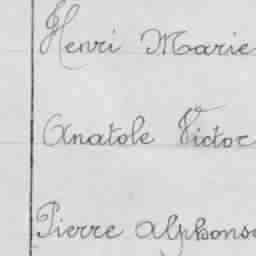 Henri Marie
Anatole Victor
Pierre Alphonse